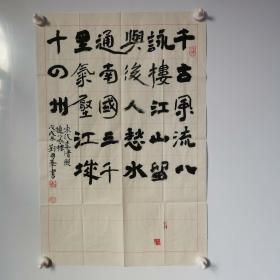 千古風流八
詠樓江山留
與後人愁水
通南國三千
里氣壓江城
十四州
宋代李清照
題八咏樓
戊戌年劉書